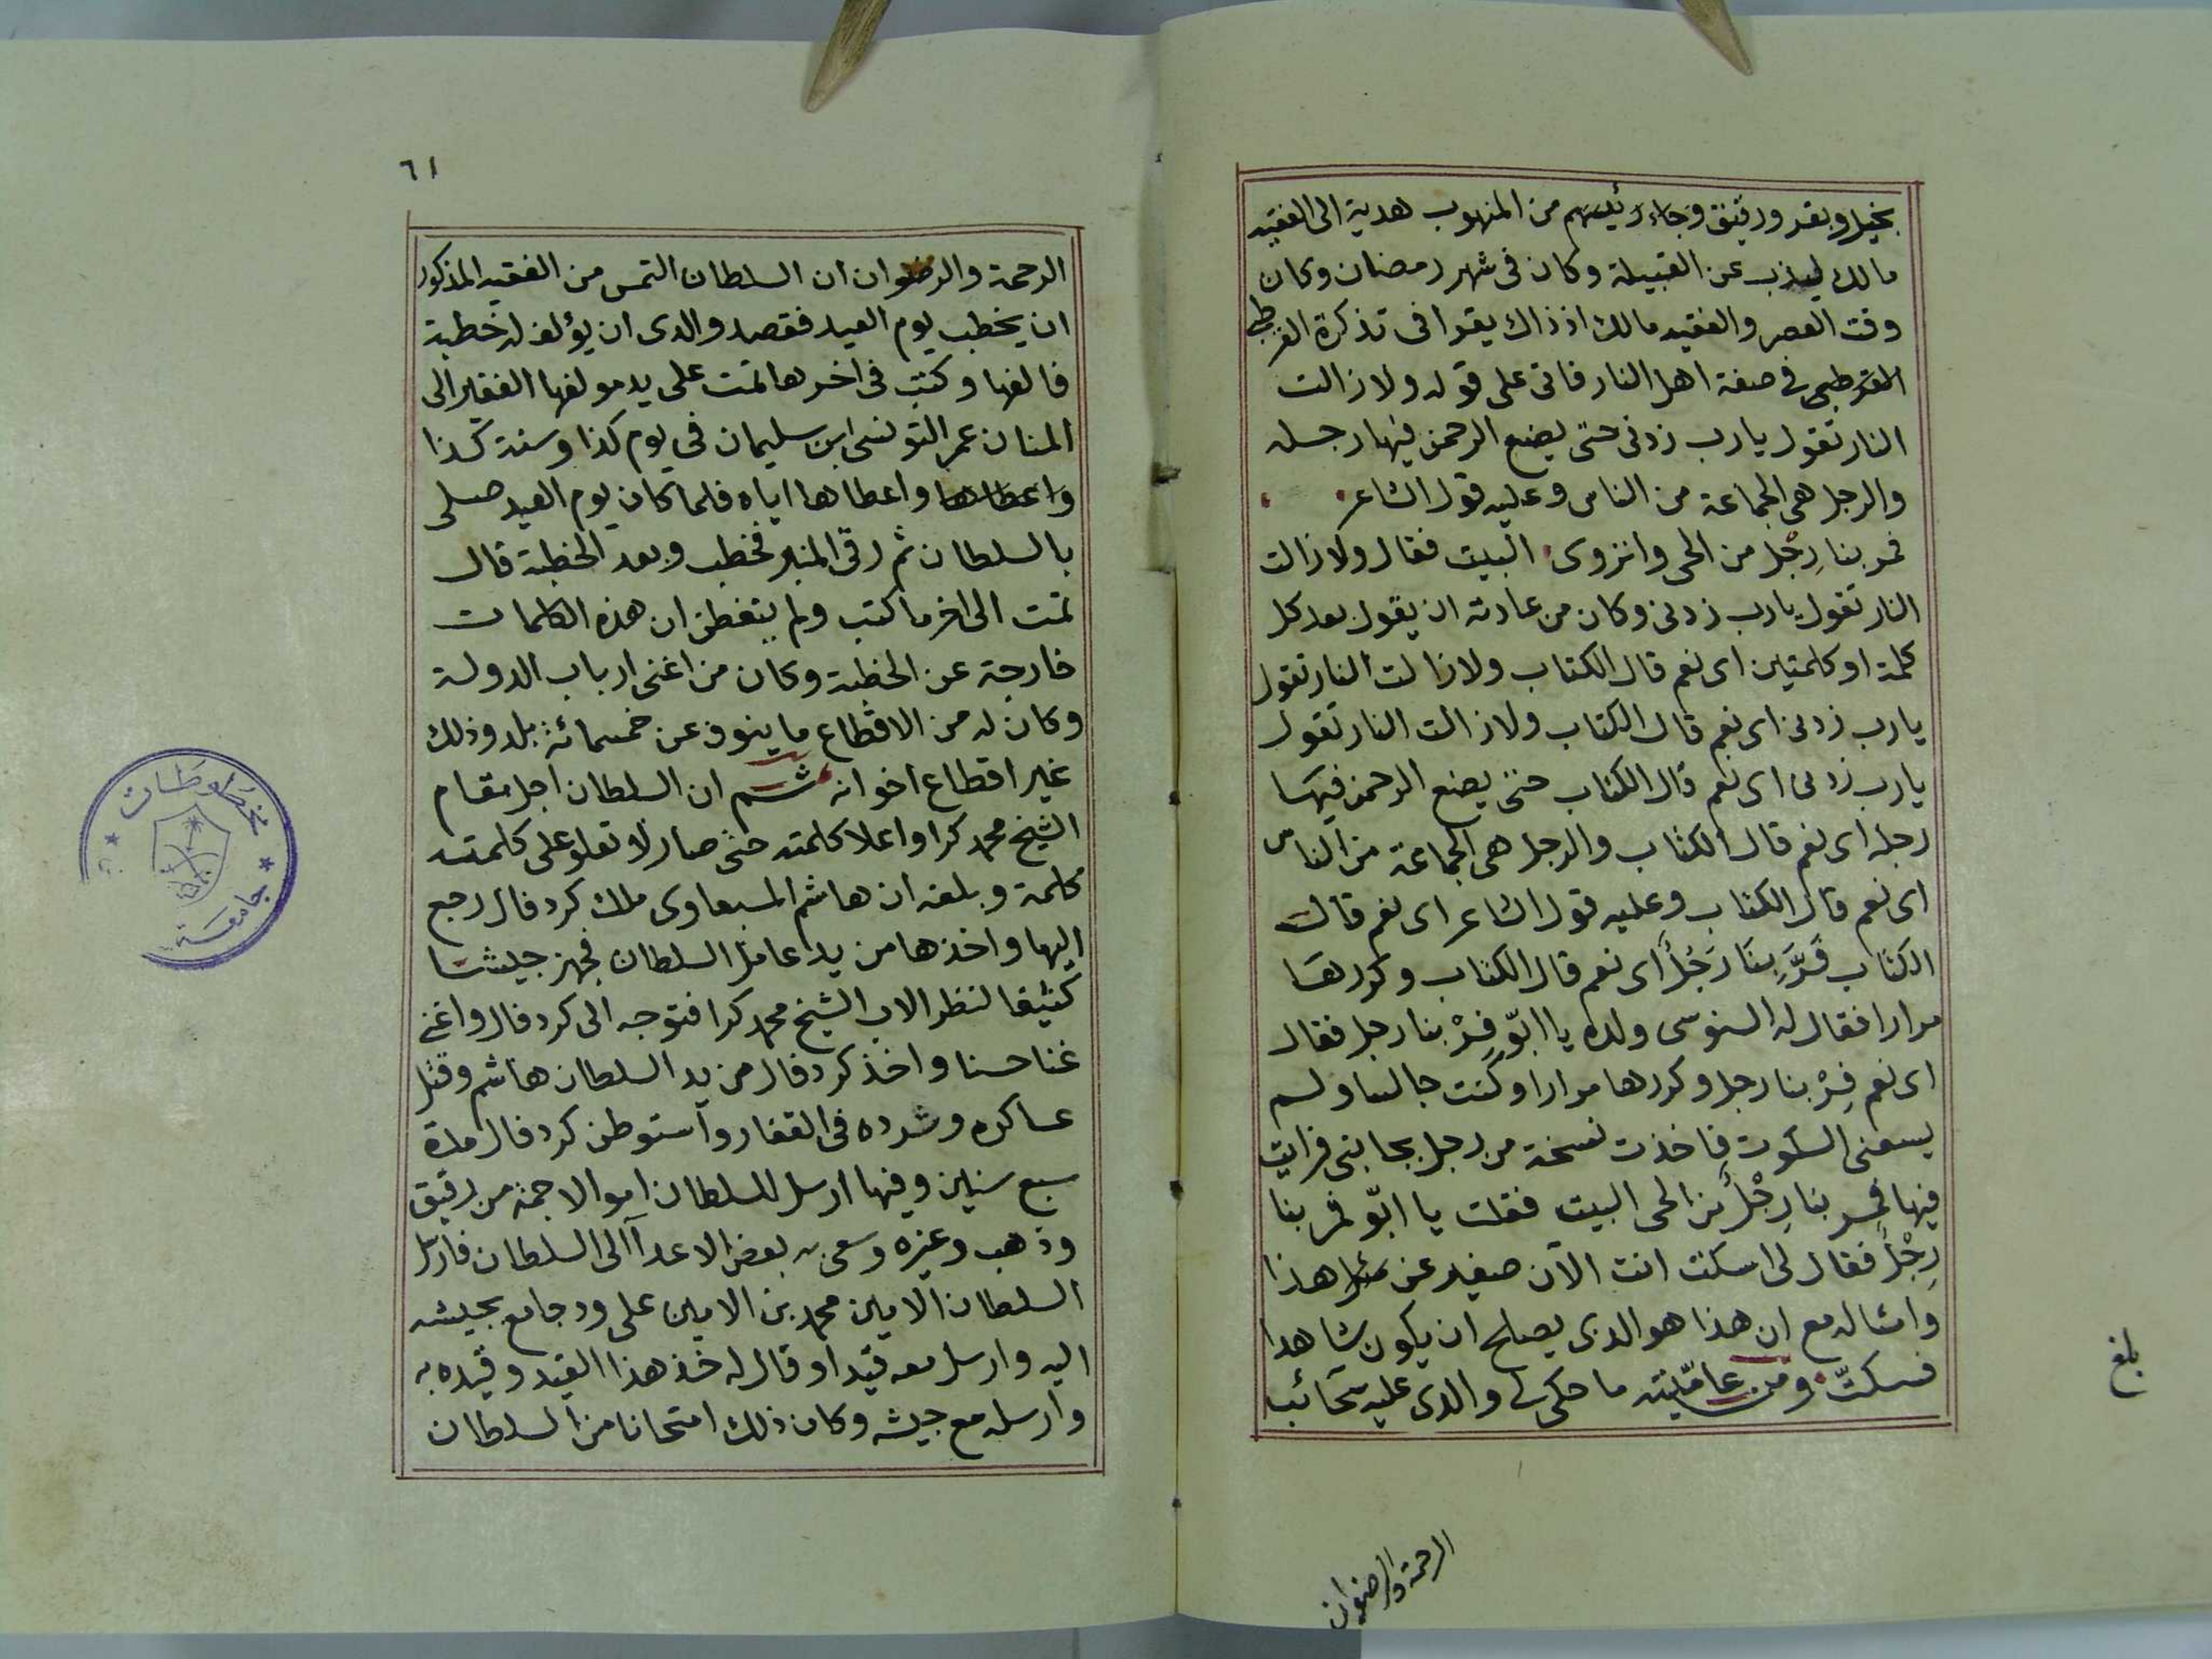 بخيل وبقر ورقيق وجاء رئيسهم من المنهوب هدية الى الفقيه
مالك ليذب عن القبيلة وكان فى شهر رمضان وكان
وقت العصر والفقيه مالك اذ ذاك يقرا فى تذكرة القرطبى
القرطبى فى صفة اهل النار فاتى على قوله ولا زالت
النار تقول يارب زدنى حتى يضع الرحمن فيها رجله
والرجل هى الجماعة من الناس وعليه قول الشاعر
فمر بنا رِجْل من الحى وانزوى البيت فقال ولا زالت
النار تقول يارب زدنى وكان من عادته ان يقول بعد كل
كلمة او كلمتين اى نعم قال الكتاب ولا زالت النار تقول
يارب زدنى اى نعم قال الكتاب ولا زالت النار تقول
يارب زدنى اى نعم قال الكتاب حتى يضع الرحمن فيها
رجله اى نعم قال الكتاب والرجل هى الجماعة من الناس
اى نعم قال الكتاب وعليه قول الشاعر اى نعم قال
الكتاب فَرَّبِنَا رَجُل اى نعم قال الكتاب وكررها
مرارا فقال له السنوسى ولده يا ابّو فِرْ بنا رجل فقال
اى نعم فِرْ بنا رجل وكررها مرارا وكنت جالسا ولم
يسعنى السكوت فاخذت نسخة من رجل بجانبى فرايت
فيها فمر بنا رِجْل من الحى البيت فقلت يا ابّو فمر بنا
رِجْل فقال لى اسكت انت الآن صغير عن مثل هذا
وامثاله مع ان هذا هو الذى يصلح ان يكون شاهدا
فسكتّ ومن عامّيته ما حكى لى والدى عليه سحائب
بلغ
الرحمة والرضوان
٦١
الرحمة والرضوان ان السلطان التمس من الفقيه المذكور
ان يخطب يوم العيد فقصد والدى ان يؤلف له خطبة
فالفها وكتب فى اخرها تمت على يد مولفها الفقير الى
المنان عمر التونسى ابن سليمان فى يوم كذا وسنة كذا
واعطاها واعطاها اياه فلما كان يوم العيد صلى
بالسلطان ثم رقى المنبر فخطب وبعد الخطبة قال
تمت الى اخر ما كتب ولم يتفطن ان هذه الكلمات
خارجة عن الخطبة وكان من اغنى ارباب الدولة
وكان له من الاقطاع ما ينوف عن خمسمائة بلد وذلك
غير اقطاع اخوانه ثم ان السلطان اجل مقام
الشيخ محمد كرا واعلا كلمته حتى صار لا تعلو على كلمته
كلمة وبلغه ان هاشم المسبعاوى ملك كردفال رجع
اليها واخذها من يد عامل السلطان فجهز جيشا
كثيفا لنظر الاب الشيخ محمد كرا فتوجه الى كردفال واغنى
غنا حسنا واخذ كردفال من يد السلطان هاشم وقتل
عساكره وشرده فى القفار واستوطن كردفال مدة
سبع سنين وفيها ارسل للسلطان اموالا جمة من رقيق
وذهب وغيره وسعى به بعض الاعدآ الى السلطان فارسل
السلطان الامين محمد بن الامين على ود جامع بجيشه
اليه وارسل معه قيدا وقال له خذ هذا القيد وقيده به
وارسله مع جيشه وكان ذلك امتحانا من السلطان
مخطوطات
جامعة